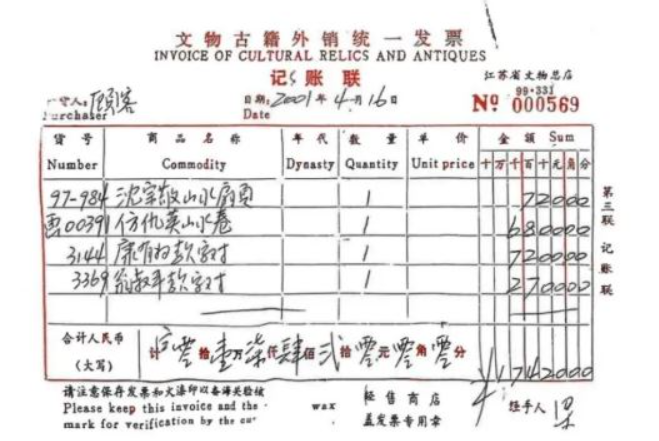 文物古籍外销统一发票
INVOICE OF CULTURAL RELICS AND ANTIQUES
记账联
江苏省文物总店
99·331
人: 顾客 日期: 2001年4月16日 № 000569
Purchaser Date
货号 商品名称 年代 数量 单价 金额 Sum
Number Commodity Dynasty Quantity Unit price 十万千百十元角分
97-984 沈宗敬山水扇页 1 72000
画00391 仿仇英山水卷 1 680000
3144 康有为款字对 1 720000
3369 翁叔平款字对 1 270000
第三联 记账联
合计人民币
(大写) 计 零拾壹万柒仟肆佰贰拾零元零角零分 ¥1742000
请注意保存发票和火漆印以备海关验核 经售商店 经手人 梁
Please keep this invoice and the wax 盖发票专用章
mark for verification by the